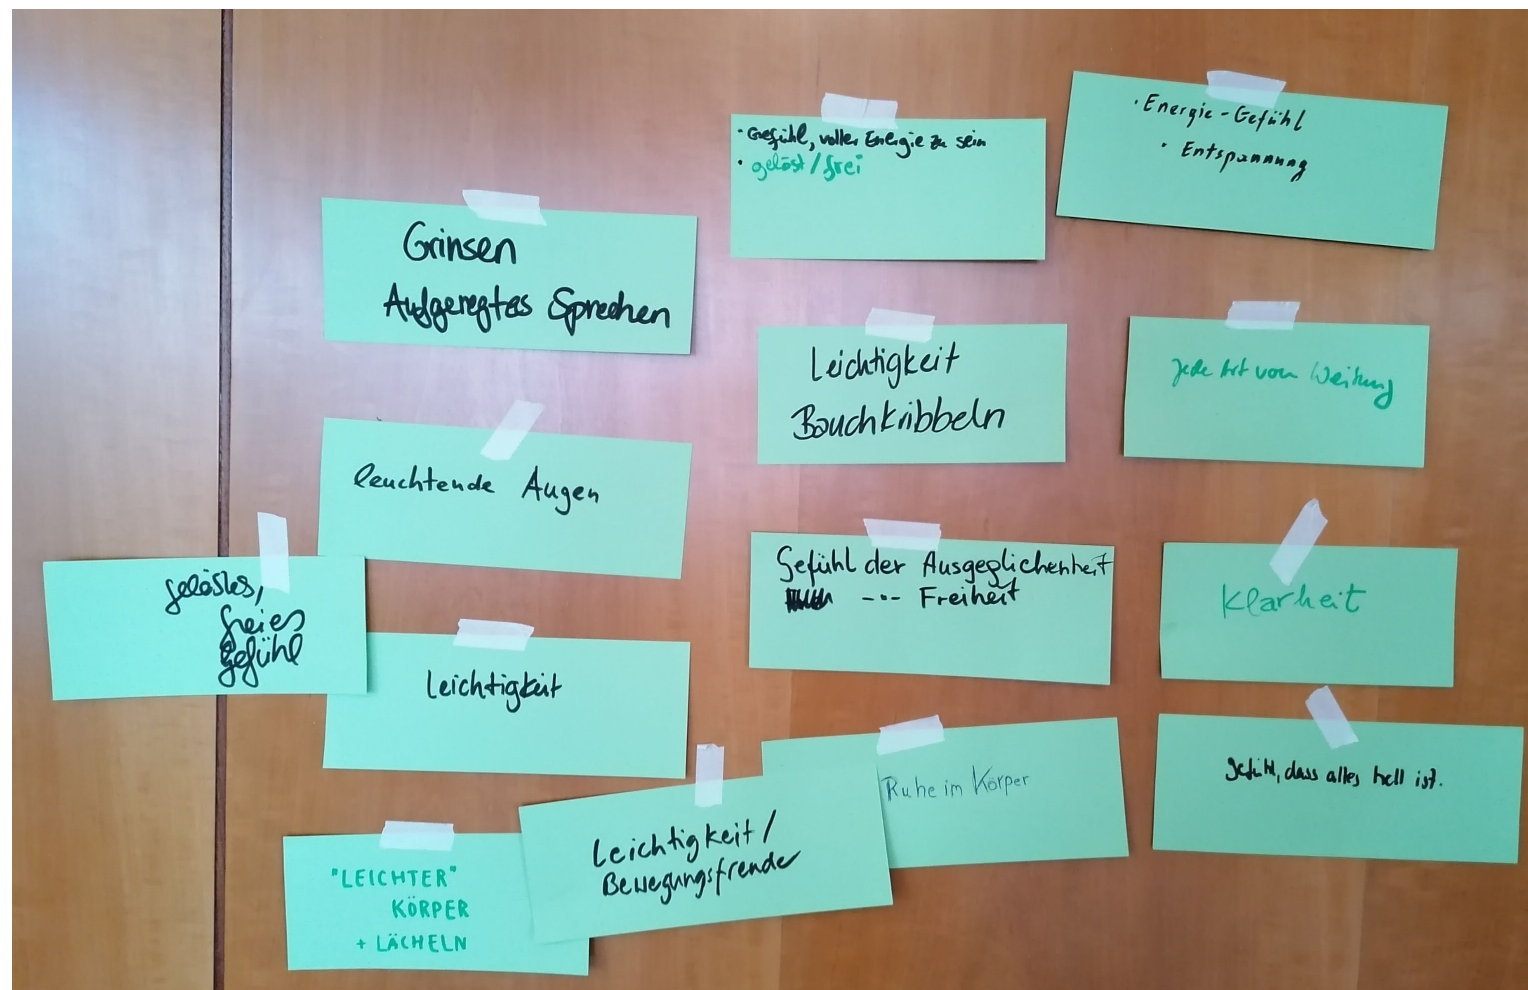 · Gefühl, voller Energie zu sein
· gelöst / frei
· Energie-Gefühl
· Entspannung
Grinsen
Aufgeregtes Sprechen
Leichtigkeit
Bauchkribbeln
Jede Art von Weitung
leuchtende Augen
gelöstes,
freies
gefühl
Gefühl der Ausgeglichenheit
-"- Freiheit
Klarheit
Leichtigkeit
Ruhe im Körper
Gefühl, dass alles hell ist.
Leichtigkeit /
Bewegungsfreude
"LEICHTER"
KÖRPER
+ LÄCHELN